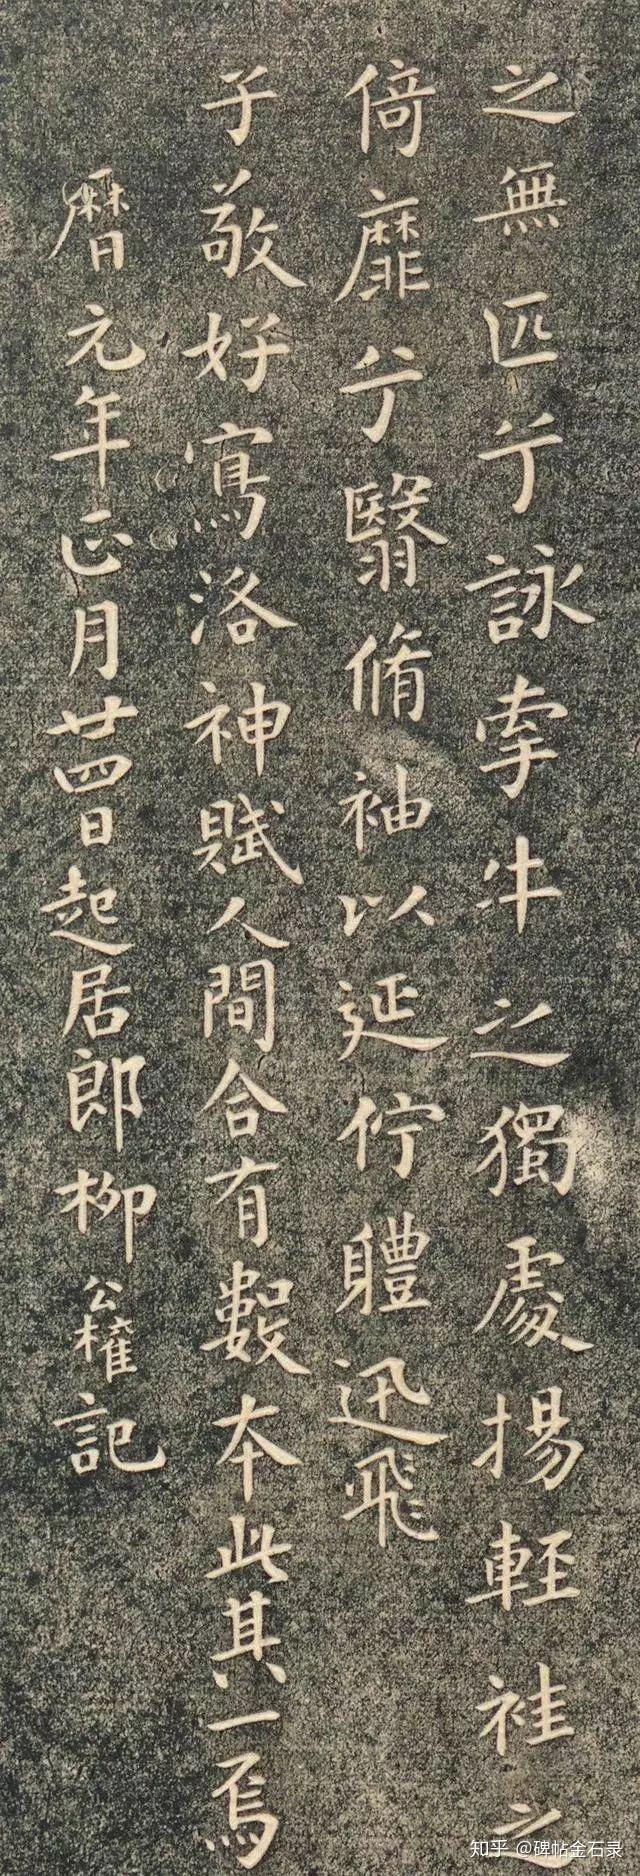 之無匹兮詠牽牛之獨處揚輕袿之
倚靡兮翳脩袖以延佇體迅飛
子敬好寫洛神賦人間合有數本此其一焉
曆元年正月廿四日起居郎柳公權記
知乎 @碑帖金石录